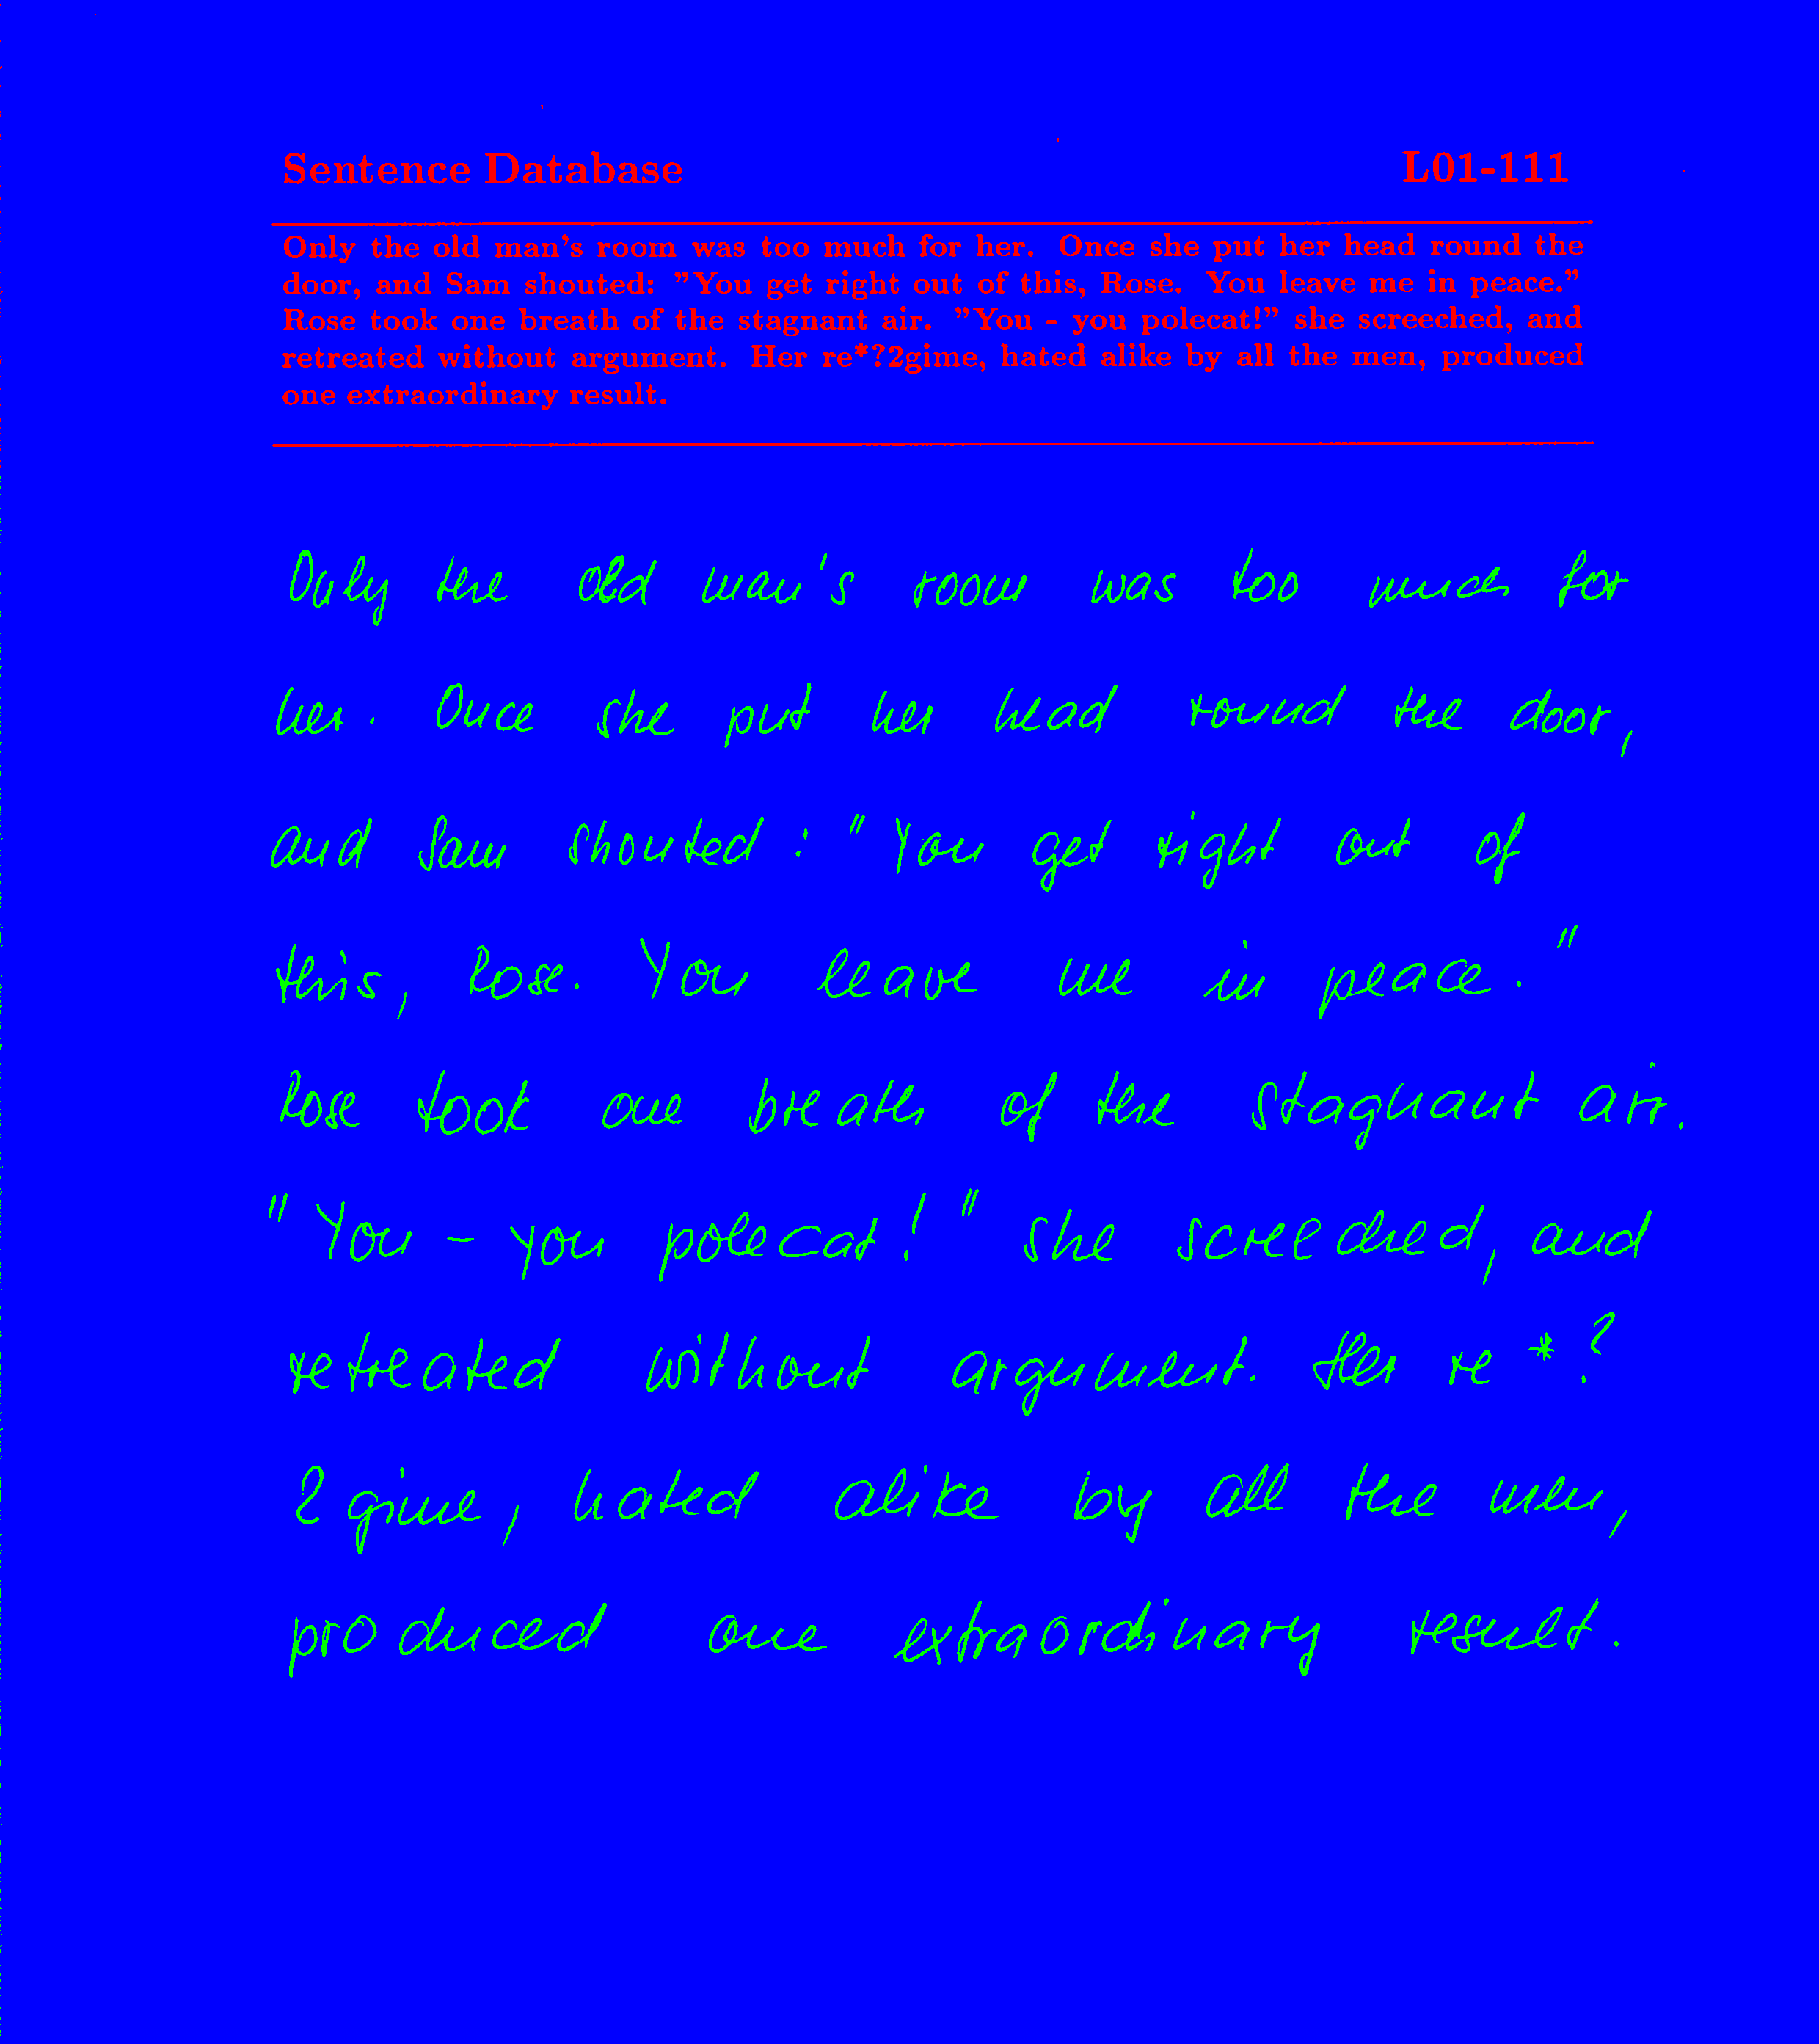 Sentence Database L01-111
Only the old man's room was too much for her. Once she put her head round the
door, and Sam shouted: "You get right out of this, Rose. You leave me in peace."
Rose took one breath of the stagnant air. "You - you polecat!" she screeched, and
retreated without argument. Her re*?2gime, hated alike by all the men, produced
one extraordinary result.
Only the old man's room was too much for
her. Once she put her head round the door,
and Sam shouted: "You get right out of
this, Rose. You leave me in peace."
Rose took one breath of the stagnant air.
"You - you polecat!" she screeched, and
retreated without argument. Her re*?
2gime, hated alike by all the men,
produced one extraordinary result.